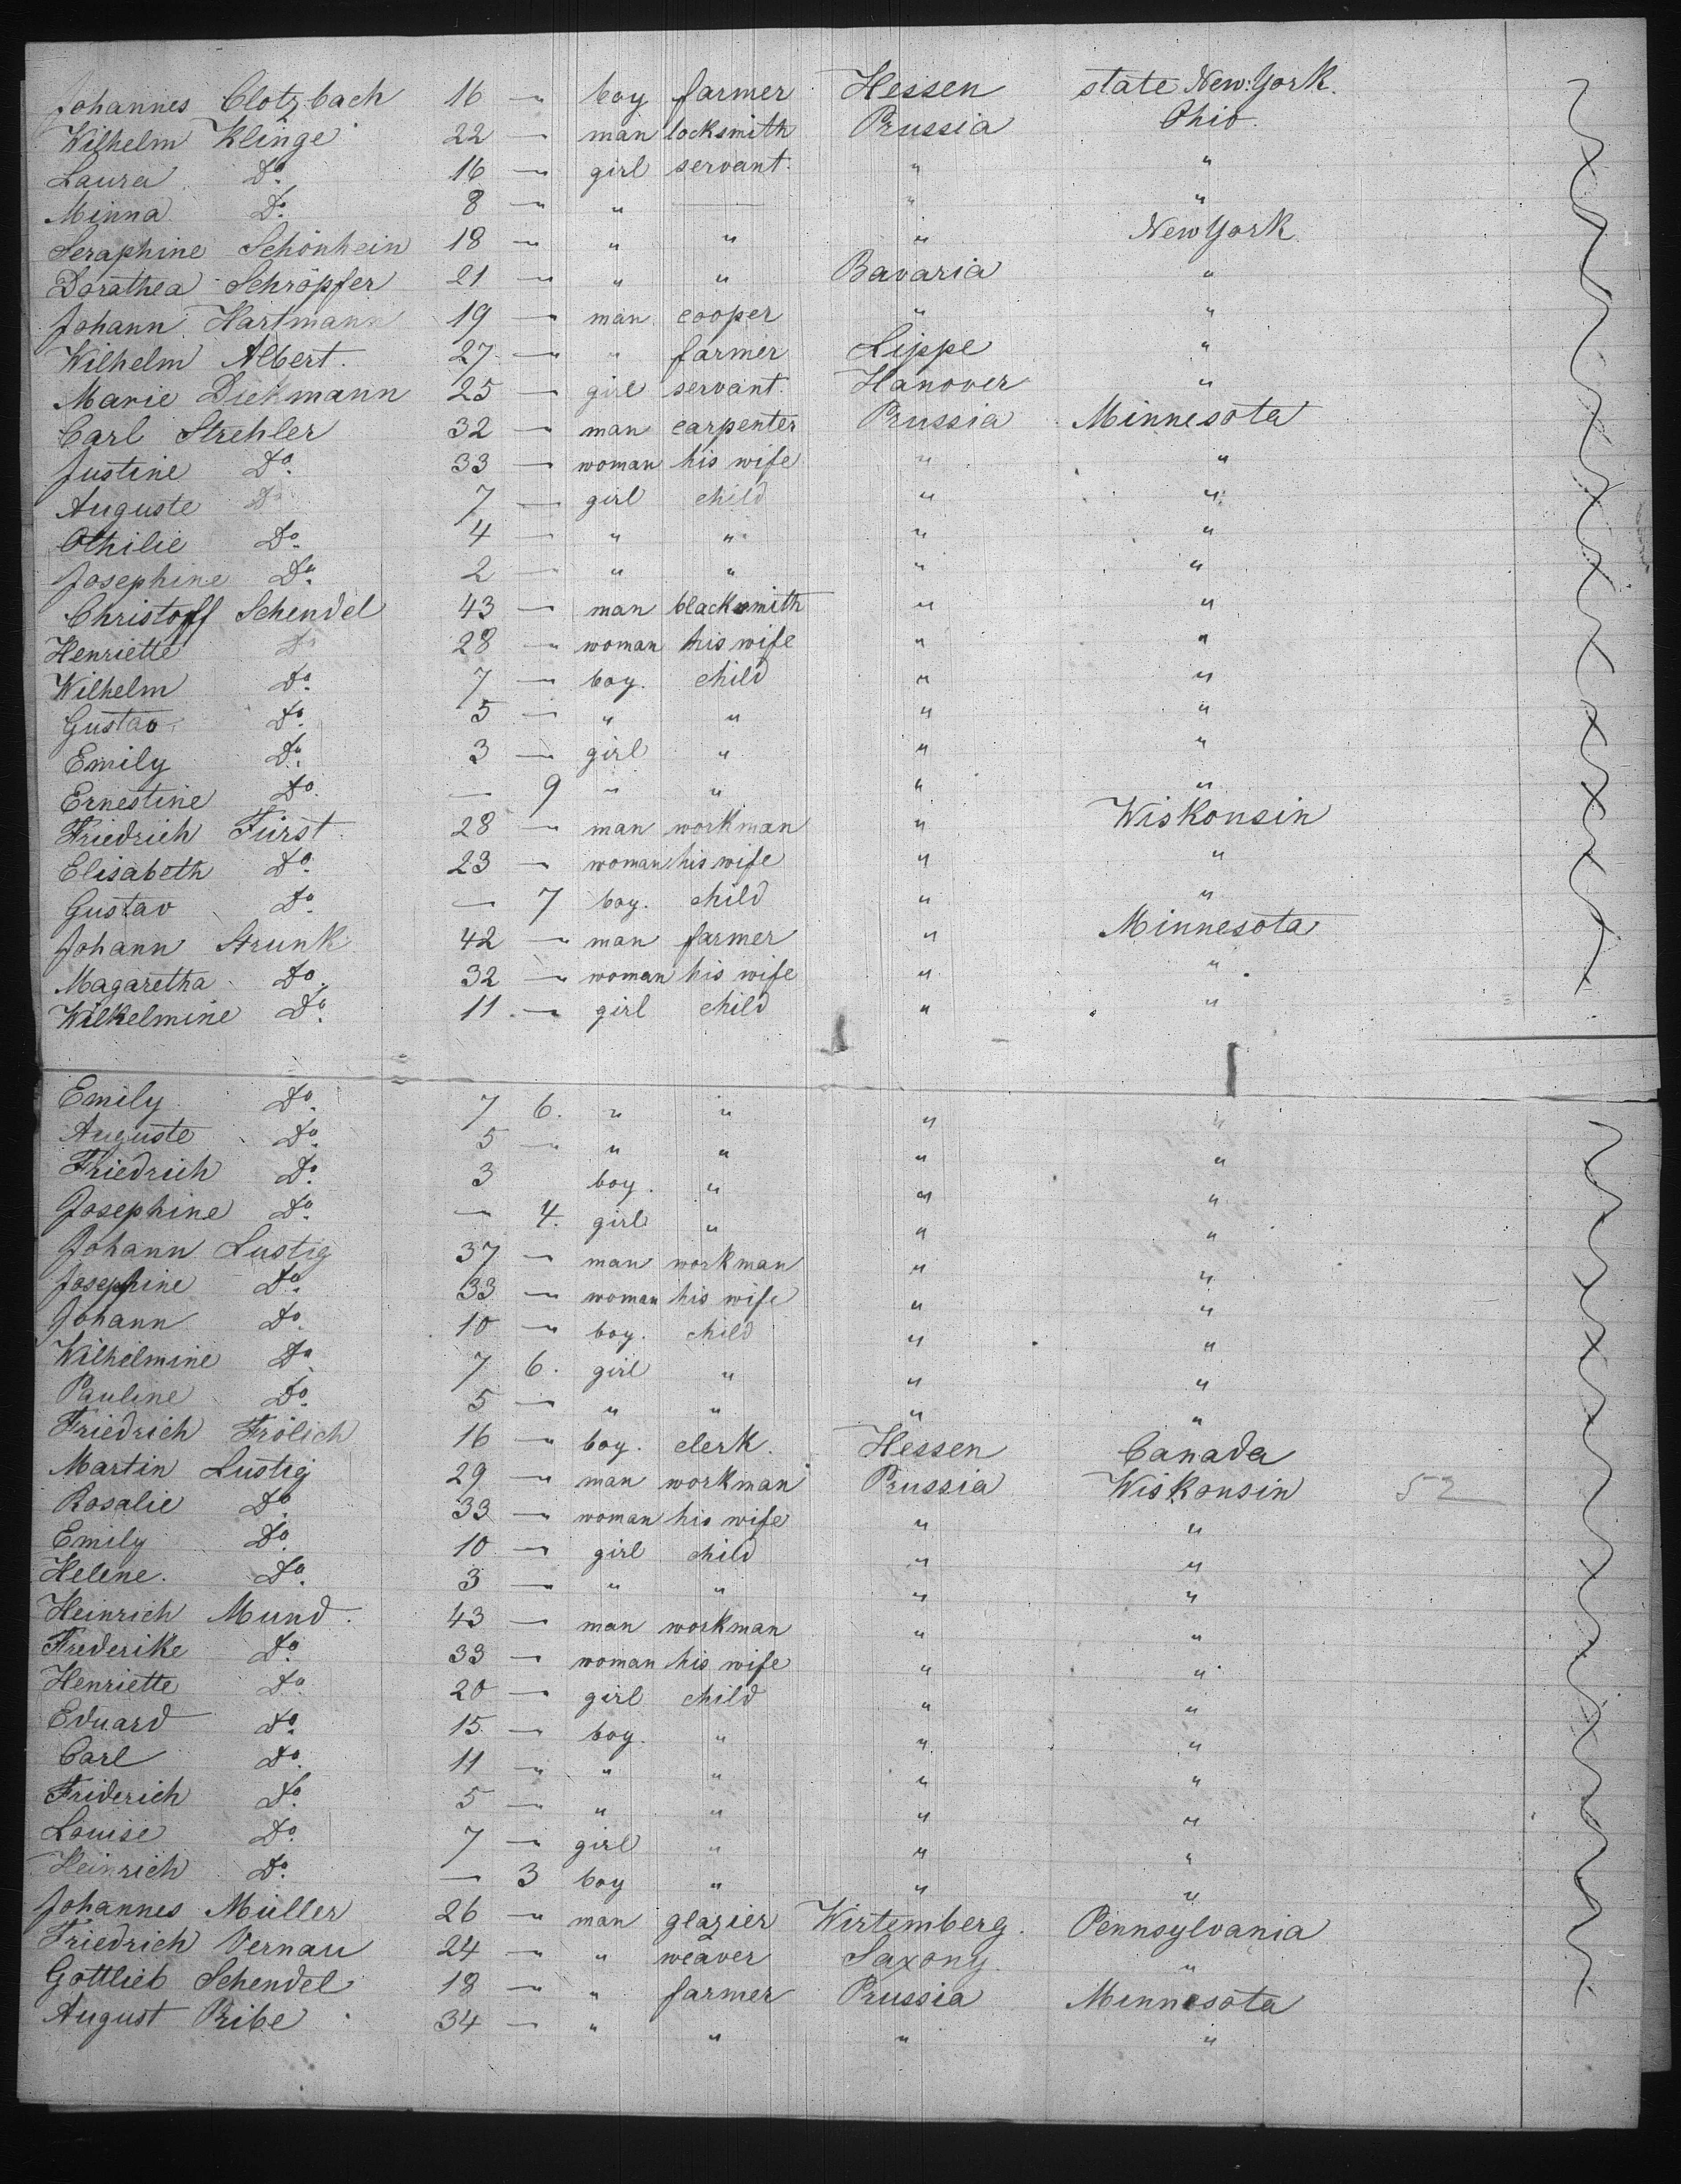 Johannes Clotzbach 16 — boy farmer Hessen state New-York.
Wilhelm Klinge 22 — man locksmith Prussia Ohio.
Laura Do. 16 — girl servant. " "
Minna Do. 8 — " — " "
Seraphine Schönhein 18 — " " " New York
Dorathea Schröpfer 21 — " " Bavaria "
Johann Hartmann 19 — man cooper " "
Wilhelm Albert. 27 — " farmer Lippe "
Marie Diekmann 25 — girl servant. Hanover "
Carl Strehler 32 — man carpenter Prussia Minnesota
Justine Do. 33 — woman his wife " "
Auguste Do 7 — girl child " "
Othilie Do. 4 — " " " "
Josephine Do. 2 — " " " "
Christoff Schendel 43 — man blacksmith " "
Henriette Do 28 — woman his wife " "
Wilhelm Do. 7 — boy. child " "
Gustav Do. 5 — " " " "
Emily Do. 3 — girl " " "
Ernestine Do. — 9 " " " "
Friedrich Fürst. 28 — man workman " Wiskonsin
Elisabeth Do. 23 — woman his wife " "
Gustav Do. — 7 boy. child " "
Johann Strunk 42 — man farmer " Minnesota
Magaretha Do. 32 — woman his wife " "
Wilhelmine Do. 11. — girl child " "
Emily Do. 7 6. " " " "
Auguste Do. 5 — " " " "
Friedrich Do. 3 boy. " " "
Josephine Do. — 4. girl " " "
Johann Lustig 37 — man workman " "
Josephine Do. 33 — woman his wife " "
Johann Do. 10 — boy. child " "
Wilhelmine Do. 7 6. girl " " "
Pauline Do. 5 — " " " "
Friedrich Frölich 16 — boy. clerk. Hessen Canada
Martin Lustig 29 — man workman Prussia Wiskonsin 52
Rosalie Do. 33 — woman his wife " "
Emily Do. 10 — girl child " "
Helene. Do. 3 — " " " "
Heinrich Mund. 43 — man workman " "
Frederike Do. 33 — woman his wife " "
Henriette Do. 20 — girl child " "
Eduard Do. 15 — boy. " " "
Carl Do. 11 — " " " "
Friderich Do. 5 — " " " "
Louise Do. 7 — girl " " "
Heinrich Do. — 3 boy " " "
Johannes Müller 26 — man glazier Wirtemberg. Pennsylvania
Friedrich Vernau 24 — " weaver Saxony. "
Gottlieb Schendel 18 — " farmer Prussia Minnesota
August Pribe 34 — " " " "